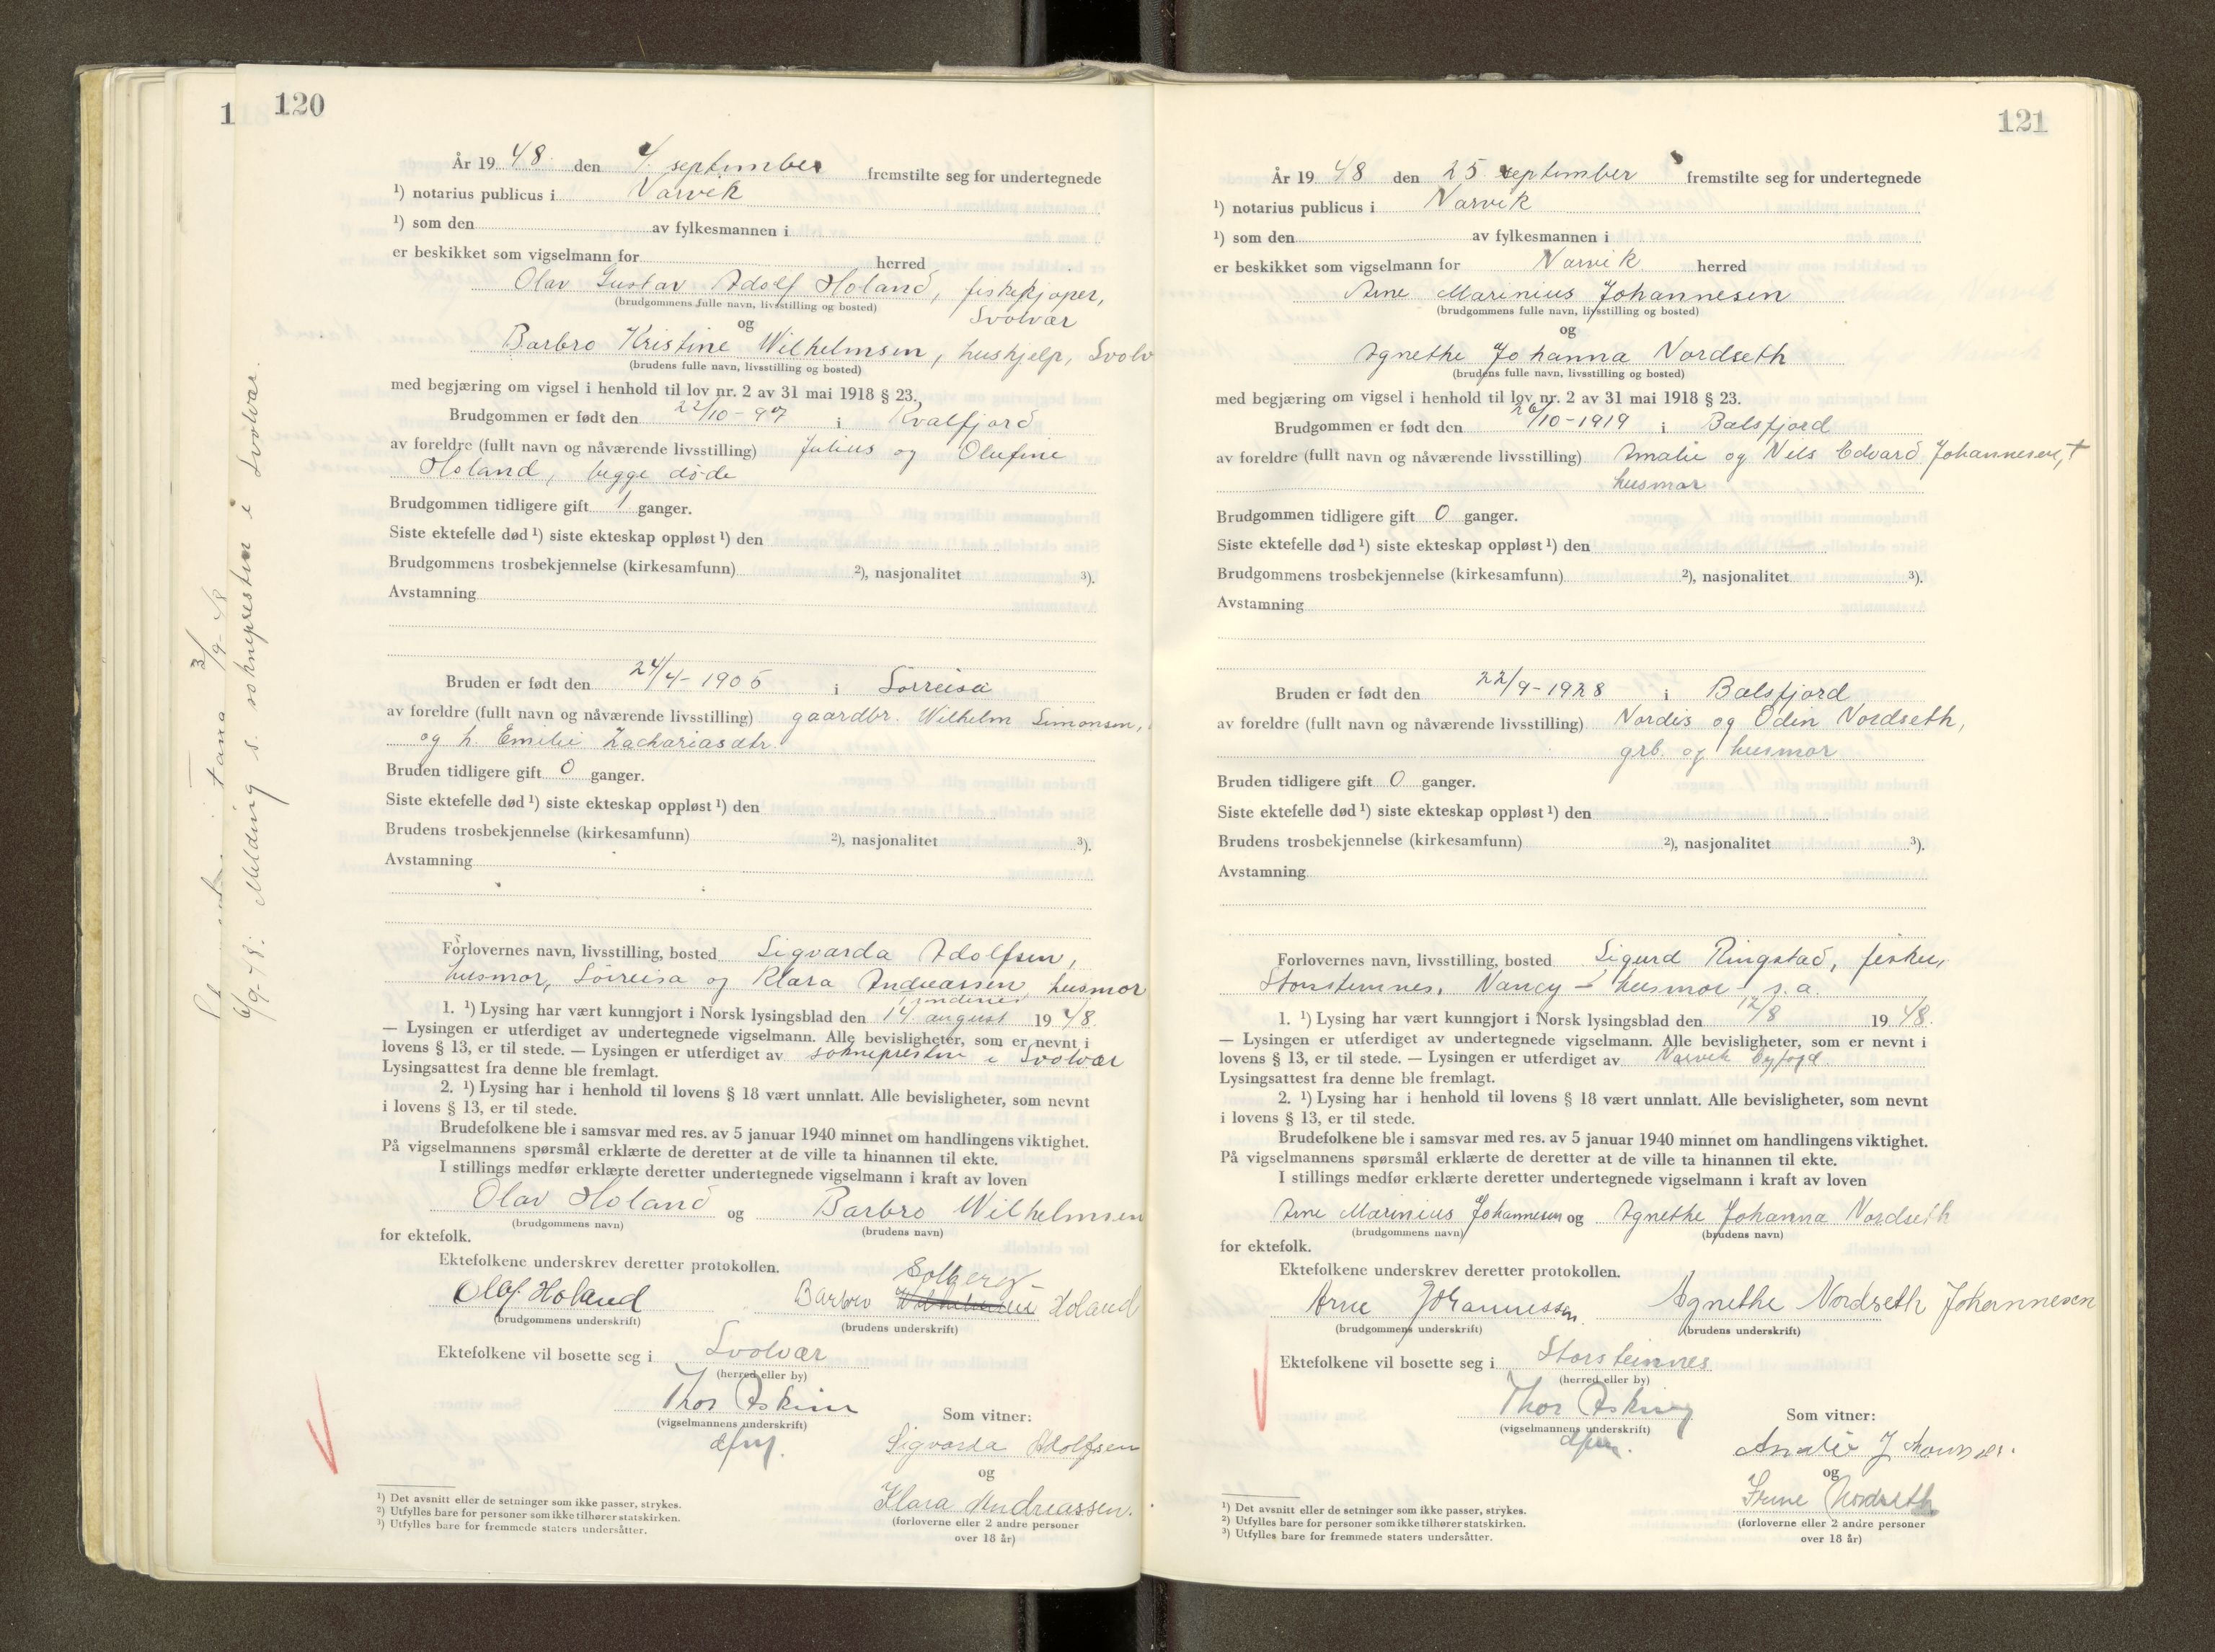 118
120
År 19 48 den 4. september fremstilte seg for undertegnede
¹) notarius publicus i Narvik
¹) som den av fylkesmannen i
er beskikket som vigselmann for herred
Olav Gustav Adolf Holand, fiskekjøper,
(brudgommens fulle navn, livsstilling og bosted)
Svolvær
og
Barbro Kristine Wilhelmsen, huskjelp, Svolv
(brudens fulle navn, livsstilling og bosted)
med begjæring om vigsel i henhold til lov nr. 2 av 31 mai 1918 § 23.
Brudgommen er født den 22/10-97 i Kvalfjord
av foreldre (fullt navn og nåværende livsstilling) Julius og Olufine
Holand, begge døde
Brudgommen tidligere gift 1 ganger.
Siste ektefelle død ¹) siste ekteskap oppløst ¹) den
Brudgommens trosbekjennelse (kirkesamfunn) ²), nasjonalitet ³).
Avstamning
Bruden er født den 24/4-1905 i Sørreisa
av foreldre (fullt navn og nåværende livsstilling) gaardbr. Wilhelm Simonsen,
og h. Emelie Zachariasdtr.
Bruden tidligere gift 0 ganger.
Siste ektefelle død ¹) siste ekteskap oppløst ¹) den
Brudens trosbekjennelse (kirkesamfunn) ²), nasjonalitet ³).
Avstamning
Forlovernes navn, livsstilling, bosted Sigvarda Adolfsen,
husmor, Sørreisa og Klara Andreassen, husmor
1. ¹) Lysing har vært kunngjort i Norsk lysingsblad den 14. august 19 48.
— Lysingen er utferdiget av undertegnede vigselmann. Alle bevisligheter, som er nevnt i
lovens § 13, er til stede. — Lysingen er utferdiget av sokneprestn i Svolvær
Lysingsattest fra denne ble fremlagt.
2. ¹) Lysing har i henhold til lovens § 18 vært unnlatt. Alle bevisligheter, som nevnt
i lovens § 13, er til stede.
Brudefolkene ble i samsvar med res. av 5 januar 1940 minnet om handlingens viktighet.
På vigselmannens spørsmål erklærte de deretter at de ville ta hinannen til ekte.
I stillings medfør erklærte deretter undertegnede vigselmann i kraft av loven
Olav Holand og Barbro Wilhelmsen
(brudgommens navn) (brudens navn)
for ektefolk.
Ektefolkene underskrev deretter protokollen.
Solberg-
Olaf Holand Barbro Wilhelmsen Holand
(brudgommens underskrift) (brudens underskrift)
Ektefolkene vil bosette seg i Svolvær
(herred eller by)
Thor Askim
(vigselmannens underskrift)
dfm.
Som vitner:
Sigvarda Adolfsen
og
Klara Andreassen.
(forloverne eller 2 andre personer
over 18 år)
¹) Det avsnitt eller de setninger som ikke passer, strykes.
²) Utfylles bare for personer som ikke tilhører statskirken.
³) Utfylles bare for fremmede staters undersåtter.
3/9-48
6/9-48: Melding s. soknepresten i Svolvær.
121
År 19 48 den 25 september fremstilte seg for undertegnede
¹) notarius publicus i Narvik
¹) som den av fylkesmannen i
er beskikket som vigselmann for Narvik herred
Arne Marinius Johannesen
(brudgommens fulle navn, livsstilling og bosted)
og
Agnethe Johanna Nordseth
(brudens fulle navn, livsstilling og bosted)
med begjæring om vigsel i henhold til lov nr. 2 av 31 mai 1918 § 23.
Brudgommen er født den 26/10-1919 i Balsfjord
av foreldre (fullt navn og nåværende livsstilling) Amalie og Nils Edvard Johannesen, +
husmor
Brudgommen tidligere gift 0 ganger.
Siste ektefelle død ¹) siste ekteskap oppløst ¹) den
Brudgommens trosbekjennelse (kirkesamfunn) ²), nasjonalitet ³).
Avstamning
Bruden er født den 22/9-1928 i Balsfjord
av foreldre (fullt navn og nåværende livsstilling) Nordis og Odin Nordseth,
grb. og husmor
Bruden tidligere gift 0 ganger.
Siste ektefelle død ¹) siste ekteskap oppløst ¹) den
Brudens trosbekjennelse (kirkesamfunn) ²), nasjonalitet ³).
Avstamning
Forlovernes navn, livsstilling, bosted Sigurd Ringstad, fisker,
Storsteinnes, Nancy — husmor s.a.
1. ¹) Lysing har vært kunngjort i Norsk lysingsblad den 12/8 19 48.
— Lysingen er utferdiget av undertegnede vigselmann. Alle bevisligheter, som er nevnt i
lovens § 13, er til stede. — Lysingen er utferdiget av Narvik byfogd.
Lysingsattest fra denne ble fremlagt.
2. ¹) Lysing har i henhold til lovens § 18 vært unnlatt. Alle bevisligheter, som nevnt
i lovens § 13, er til stede.
Brudefolkene ble i samsvar med res. av 5 januar 1940 minnet om handlingens viktighet.
På vigselmannens spørsmål erklærte de deretter at de ville ta hinannen til ekte.
I stillings medfør erklærte deretter undertegnede vigselmann i kraft av loven
Arne Marinius Johannesen og Agnethe Johanna Nordseth
(brudgommens navn) (brudens navn)
for ektefolk.
Ektefolkene underskrev deretter protokollen.
Arne Johannessen. Agnethe Nordseth Johannesen
(brudgommens underskrift) (brudens underskrift)
Ektefolkene vil bosette seg i Storsteinnes
(herred eller by)
Thor Askim
(vigselmannens underskrift)
dfm.
Som vitner:
og
Nordseth
(forloverne eller 2 andre personer
over 18 år)
¹) Det avsnitt eller de setninger som ikke passer, strykes.
²) Utfylles bare for personer som ikke tilhører statskirken.
³) Utfylles bare for fremmede staters undersåtter.